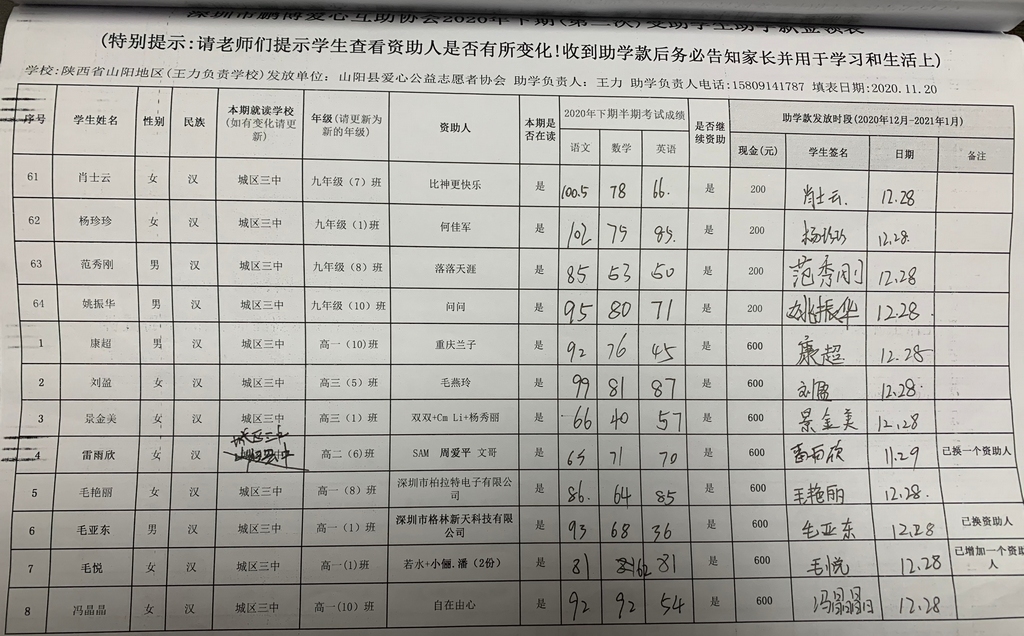 深圳市鹏博爱心互助协会2020年下期(第二次)受助学生助学款签领表
(特别提示:请老师们提示学生查看资助人是否有所变化!收到助学款后务必告知家长并用于学习和生活上)
学校:陕西省山阳地区(王力负责学校)发放单位：山阳县爱心公益志愿者协会 助学负责人：王力 助学负责人电话:15809141787 填表日期:2020.11.20
序号 学生姓名 性别 民族 本期就读学校(如有变化请更新) 年级(请更新为新的年级) 资助人 本期是否在读 2020年下期半期考试成绩 是否继续资助 助学款发放时段(2020年12月-2021年1月)
语文 数学 英语 现金(元) 学生签名 日期 备注
61 肖士云 女 汉 城区三中 九年级（7）班 比神更快乐 是 100.5 78 66. 是 200 肖士云. 12.28
62 杨珍珍 女 汉 城区三中 九年级（1)班 何佳军 是 102 75 85. 是 200 杨珍珍 12.28.
63 范秀刚 男 汉 城区三中 九年级（8）班 落落天涯 是 85 53 50 是 200 范秀刚 12.28
64 姚振华 男 汉 城区三中 九年级（10）班 问问 是 95 80 71 是 200 姚振华 12.28
1 康超 男 汉 城区三中 高一（10)班 重庆兰子 是 92 76 45 是 600 康超 12.28
2 刘盈 女 汉 城区三中 高三（5）班 毛燕玲 是 99 81 87 是 600 刘盈 12.28.
3 景金美 女 汉 城区三中 高三（1）班 双双+Cm Li+杨秀丽 是 66 40 57 是 600 景金美 12.28
4 雷雨欣 女 汉 城区三中 高二（6)班 SAM 周爱平 文哥 是 65 71 70 是 600 雷雨欣 11.29 已换一个资助人
5 毛艳丽 女 汉 城区三中 高一（8）班 深圳市柏拉特电子有限公司 是 86. 64 85 是 600 毛艳丽 12.28.
6 毛亚东 男 汉 城区三中 高一（1）班 深圳市格林新天科技有限公司 是 93 68 36 是 600 毛亚东 12.28 已换资助人
7 毛悦 女 汉 城区三中 高一(1)班 若水+小俪.潘（2份） 是 81 62 81 是 600 毛悦 12.28 已增加一个资助人
8 冯晶晶 女 汉 城区三中 高一(10）班 自在由心 是 92 92 54 是 600 冯晶晶 12.28